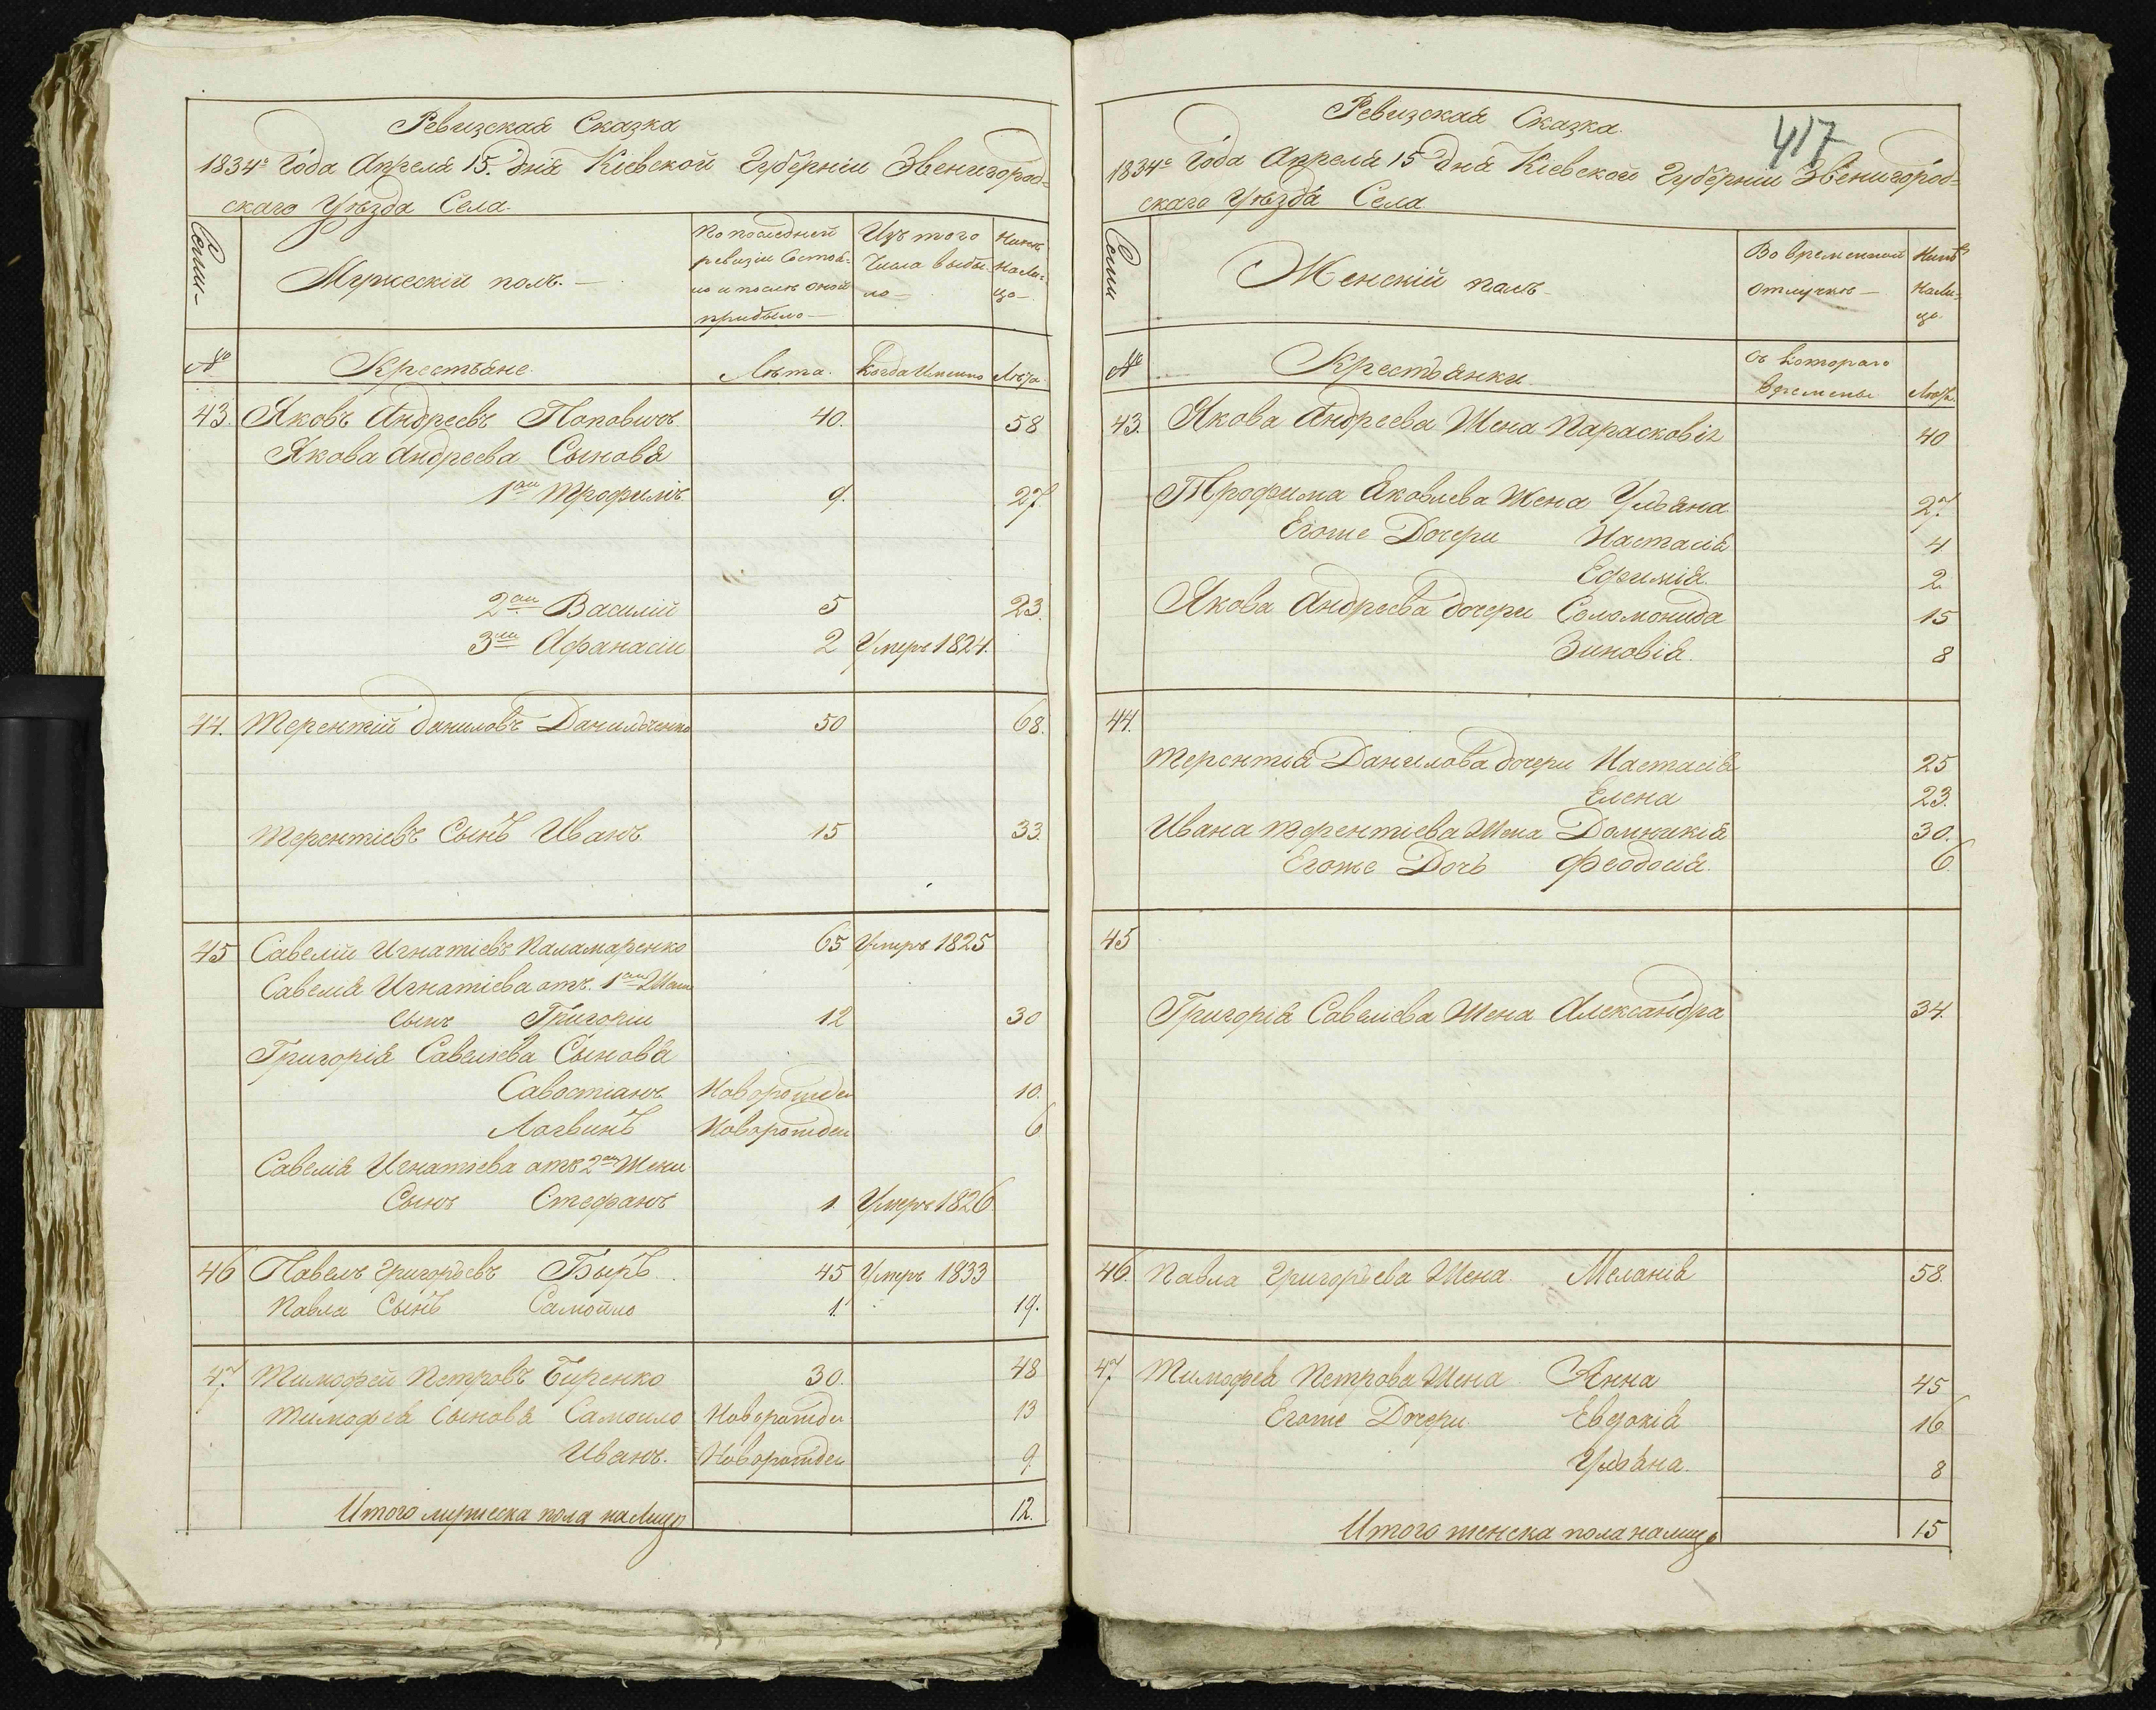 Ревизская Сказка
1834го Года Апреля 15. дня Кіевской Губерніи Звенигород=
скаго Уѣзда Села
Семьи
Мужескій полъ.
По последней ревизіи состояло и послѣ оной прибыло
Изъ того числа выбыло
Нынѣ на лицо
№
Крестьяне
Лѣта.
Когда именно
Лѣта
43. Яковъ Андреевъ Поповичъ 40. 58
Якова Андреева Сыновья
1ый Трофимъ 9. 27.
2ой Василій 5 23.
3ій Афанасій 2 Умеръ 1824.
44. Терентій Даниловъ Данильченко 50 68.
Терентіевъ Сынъ Иванъ 15 33.
45 Савелій Игнатіевъ Паламаренко 65 Умеръ 1825
Савелія Игнатіева отъ 1ой Жены
Сынъ Григорий 12 30
Григорія Савеліева Сыновья
Савостіанъ Новорожден 10.
Логвинъ Новорожден 6
Савелія Игнатіева отъ 2ой Жены
Сынъ Стефанъ 1. Умеръ 1826
46 Павелъ Григорьевъ Бырь 45 Умеръ 1833
Павла Сынъ Самойло 1. 19.
47 Тимофей Петровъ Биренко 30. 48
Тимофея Сыновья Самоило Новорожден 13
Иванъ. Новорожден 9.
Итого мужеска пола на лицо 12.
Ревизская Сказка.
417
1834го Года Апреля 15 дня Кіевской Губерніи Звенигород=
скаго Уѣзда Села
Семьи
Женскій полъ
Во временной отлучкѣ
Нынѣ на лицо.
№
Крестьянки
Съ котораго времени
Лѣта.
43. Якова Андреева Жена Парасковія 40
Трофима Яковлева Жена Ульяна 27.
Егоже Дочери Настасія 4
Ефимія. 2.
Якова Андреева дочери Соломонида 15
Зиновія. 8
44.
Терентія Данилова дочери Настасія 25
Елена 23.
Ивана Терентіева Жена Домникія 30.
Егоже Дочь Феодосія. 6.
45
Григорія Савеліева Жена Александра 34.
46. Павла Григорьева Жена. Меланія 58.
47 Тимофея Петрова Жена Анна 45
Егоже Дочери Евдокія 16
Ульяна. 8
Итого женска пола налицо 15